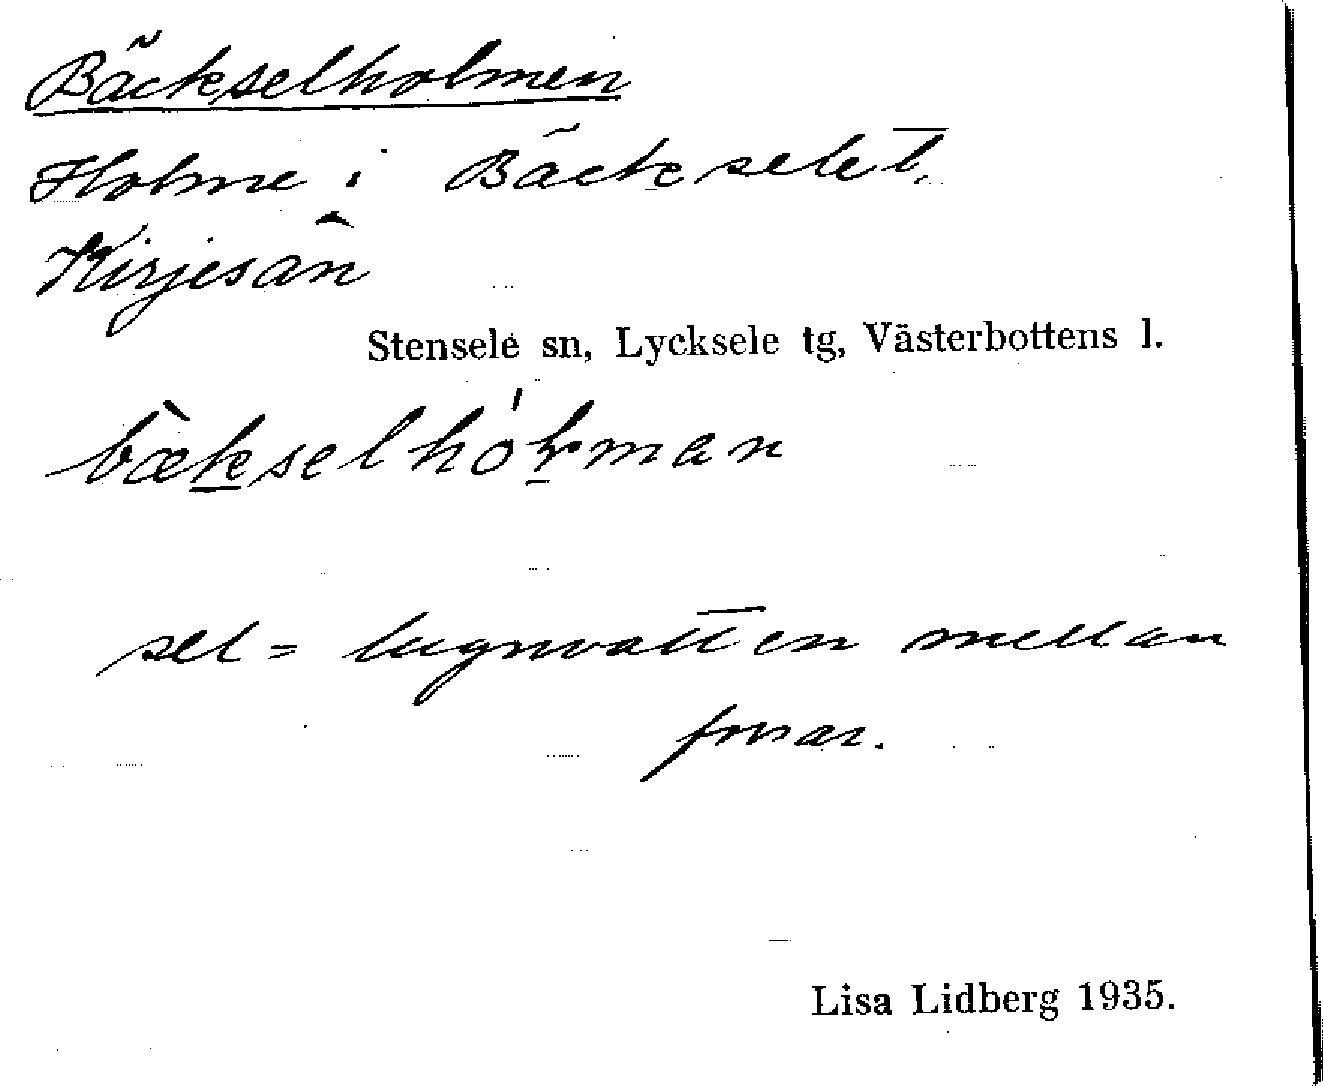 Bäckselholmen
Holme i Bäckselet,
Kirjesån
Stensele sn, Lycksele tg, Västerbottens l.
sel = lugnvatten mellan
forsar.
Lisa Lidberg 1935.